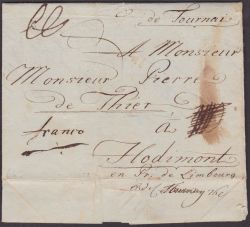 de Tournai
A Monsieur
Monsieur Pierre
de Thier
à
franco
Hodimont
en Pr. de Limbourg